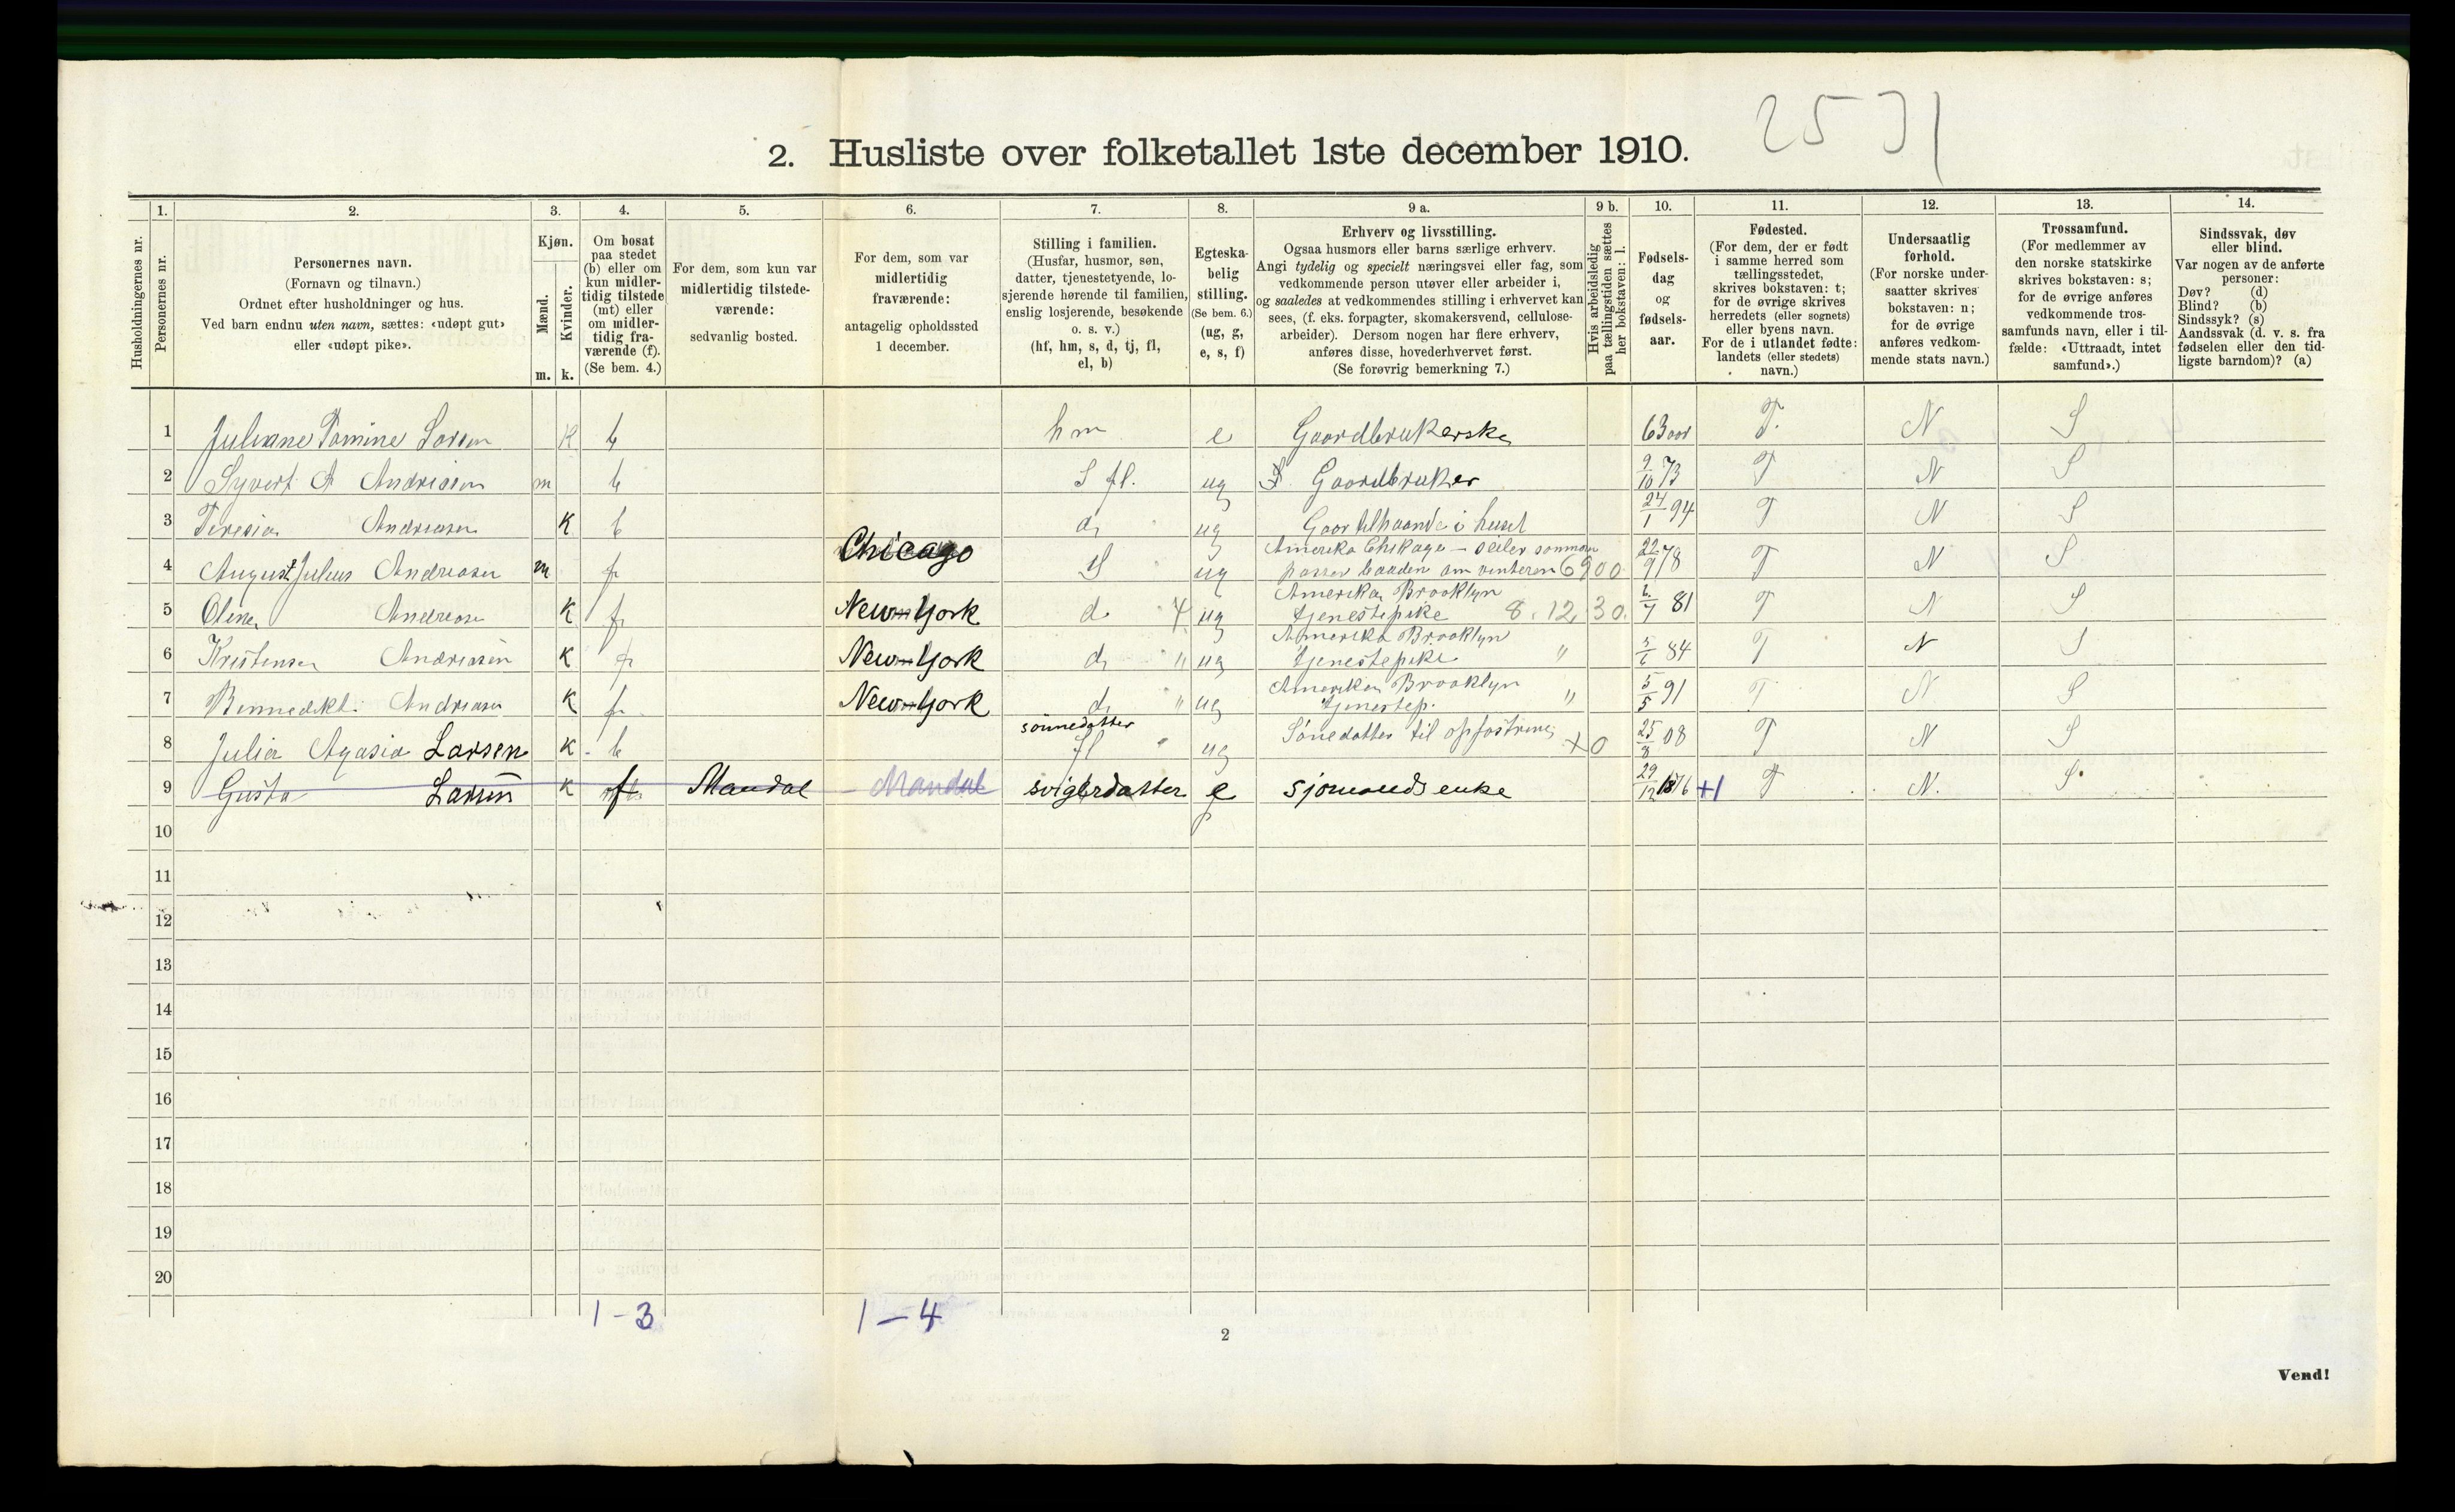 2531
2. Husliste over folketallet 1ste december 1910.
1. 2. 3. 4. 5. 6. 7. 8. 9 a. 9 b. 10. 11. 12. 13. 14.
Husholdningernes nr.
Personernes nr.
Personernes navn.
(Fornavn og tilnavn.)
Ordnet efter husholdninger og hus.
Ved barn endnu uten navn, sættes: «udøpt gut»
eller «udøpt pike».
Kjøn.
Mænd.
Kvinder.
m. k.
Om bosat
paa stedet
(b) eller om
kun midler-
tidig tilstede
(mt) eller
om midler-
tidig fra-
værende (f).
(Se bem. 4.)
For dem, som kun var
midlertidig tilstede-
værende:
sedvanlig bosted.
For dem, som var
midlertidig
fraværende:
antagelig opholdssted
1 december.
Stilling i familien.
(Husfar, husmor, søn,
datter, tjenestetyende, lo-
sjerende hørende til familien,
enslig losjerende, besøkende
o. s. v.)
(hf, hm, s, d, tj, fl,
el, b)
Egteska-
belig
stilling.
(Se bem. 6.)
(ug, g,
e, s, f)
Erhverv og livsstilling.
Ogsaa husmors eller barns særlige erhverv.
Angi tydelig og specielt næringsvei eller fag, som
vedkommende person utøver eller arbeider i,
og saaledes at vedkommendes stilling i erhvervet kan
sees, (f. eks. forpagter, skomakersvend, cellulose-
arbeider). Dersom nogen har flere erhverv,
anføres disse, hovederhvervet først.
(Se forøvrig bemerkning 7.)
Hvis arbeidsledig
paa tællingstiden sættes
her bokstaven: l.
Fødsels-
dag
og
fødsels-
aar.
Fødested.
(For dem, der er født
i samme herred som
tællingsstedet,
skrives bokstaven: t;
for de øvrige skrives
herredets (eller sognets)
eller byens navn.
For de i utlandet fødte:
landets (eller stedets)
navn.)
Undersaatlig
forhold.
(For norske under-
saatter skrives
bokstaven: n;
for de øvrige
anføres vedkom-
mende stats navn.)
Trossamfund.
(For medlemmer av
den norske statskirke
skrives bokstaven: s;
for de øvrige anføres
vedkommende tros-
samfunds navn, eller i til-
fælde: «Uttraadt, intet
samfund».)
Sindssvak, døv
eller blind.
Var nogen av de anførte
personer:
Døv? (d)
Blind? (b)
Sindssyk? (s)
Aandssvak (d. v. s. fra
fødselen eller den tid-
ligste barndom)? (a)
1 Juliane Tomine Larsen K b hm e Gaardbrukerske 63 aar T. N S
2 Syvert A Andreasen m b S fl. ug Gaardbruker 9/10 73 T N S
3 Teresia Andreasen K b d ug Gaar tilhaande i huset 24/1 94 T N S
4 August Julius Andreasen m f Chicago S ug Amerika Chikago - seiler sommer 22/9 78 T N S
passer baaden om vinteren 6900
5 Oline Andreasen K f New-York d ug Amerika Brooklyn 6/7 81 T N S
tjenestepike 8.12.30.
6 Kristense Andreasen K f New-York d " ug Amerika Brooklyn 5/6 84 T N S
tjenestepike "
7 Bennedikte Andreasen K f New-York d " ug Amerika Brooklyn 5/5 91 T N S
tjenestep. "
8 Julia Agasia Larsen K b sønnedatter fl ug Sønedatter til opfostring +0 25/8 08 T N S
9 Gusta Larsen K f Mandal Mandal svigerdatter e Sjømands enke 29/12 1876 +1 T N. S.
10
11
12
13
14
15
16
17
18
19
20
1-3 1-4
2
Vend!